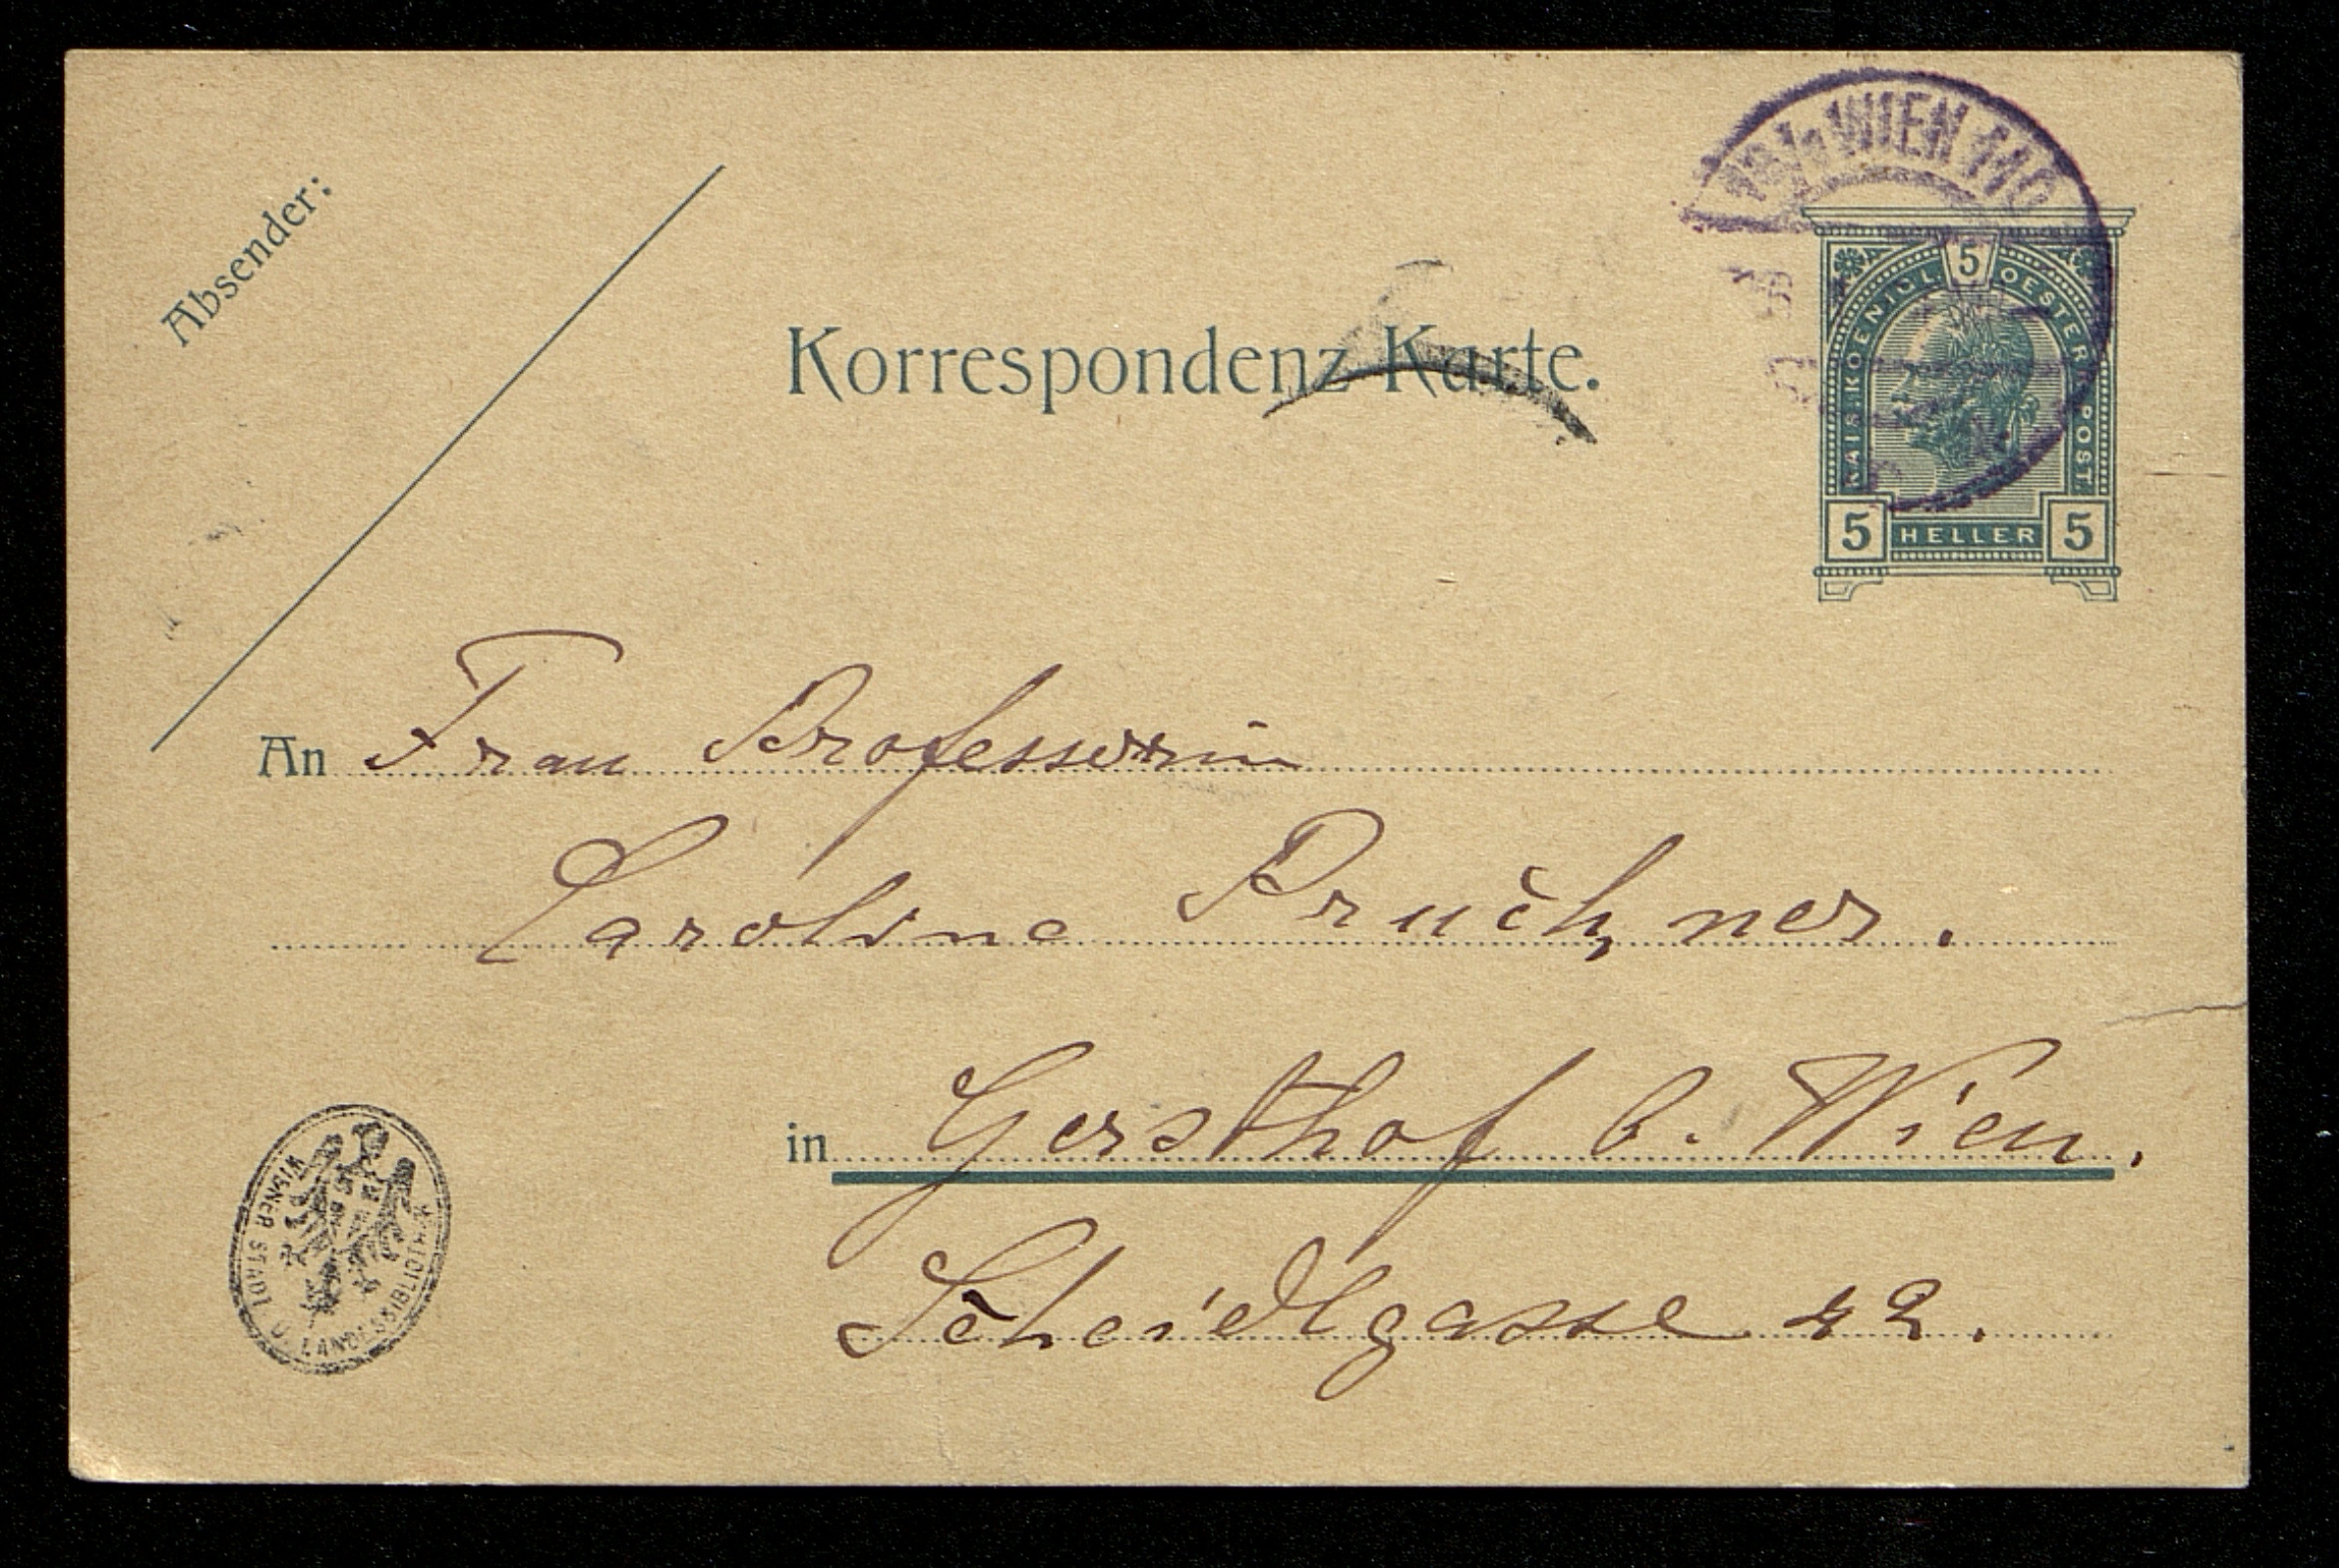 Absender:
Korrespondenz-Karte.
WIEN 110
5
KAIS. KOENIGL. OESTERR. POST.
5 HELLER 5
An Frau Professorin
Caroline Pruchner.
in Gersthof b. Wien.
Scheidlgasse 42.
WIENER STADT U. LANDESBIBLIOTHEK